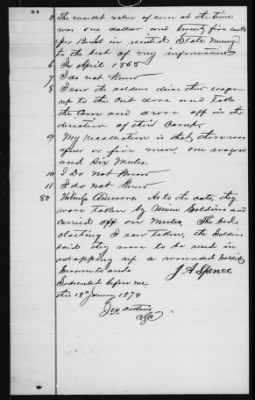 5 The market value of corn at the time
was one dollar and twenty five cents
per Bush in United State Money
to the best of my information
6 In April 1865
7 I do not know
8 I saw the soldiers drive their wagon
up to the Crib door and take
the Corn and drove off in the
direction of their Camp.
9 My recollection is that there was
four or five men, one wagon
and six mules.
10 I Do not know
11 I do not know
80 As to the oats, they
were taken by Union Soldiers and
carried off on Mules. The bed
clothing I saw taken, the Soldiers
said they were to be used in
wrapping up a wounded Soldier
J A Spence
Sworn to and
Subscribed before me
this 18th Jany 1878